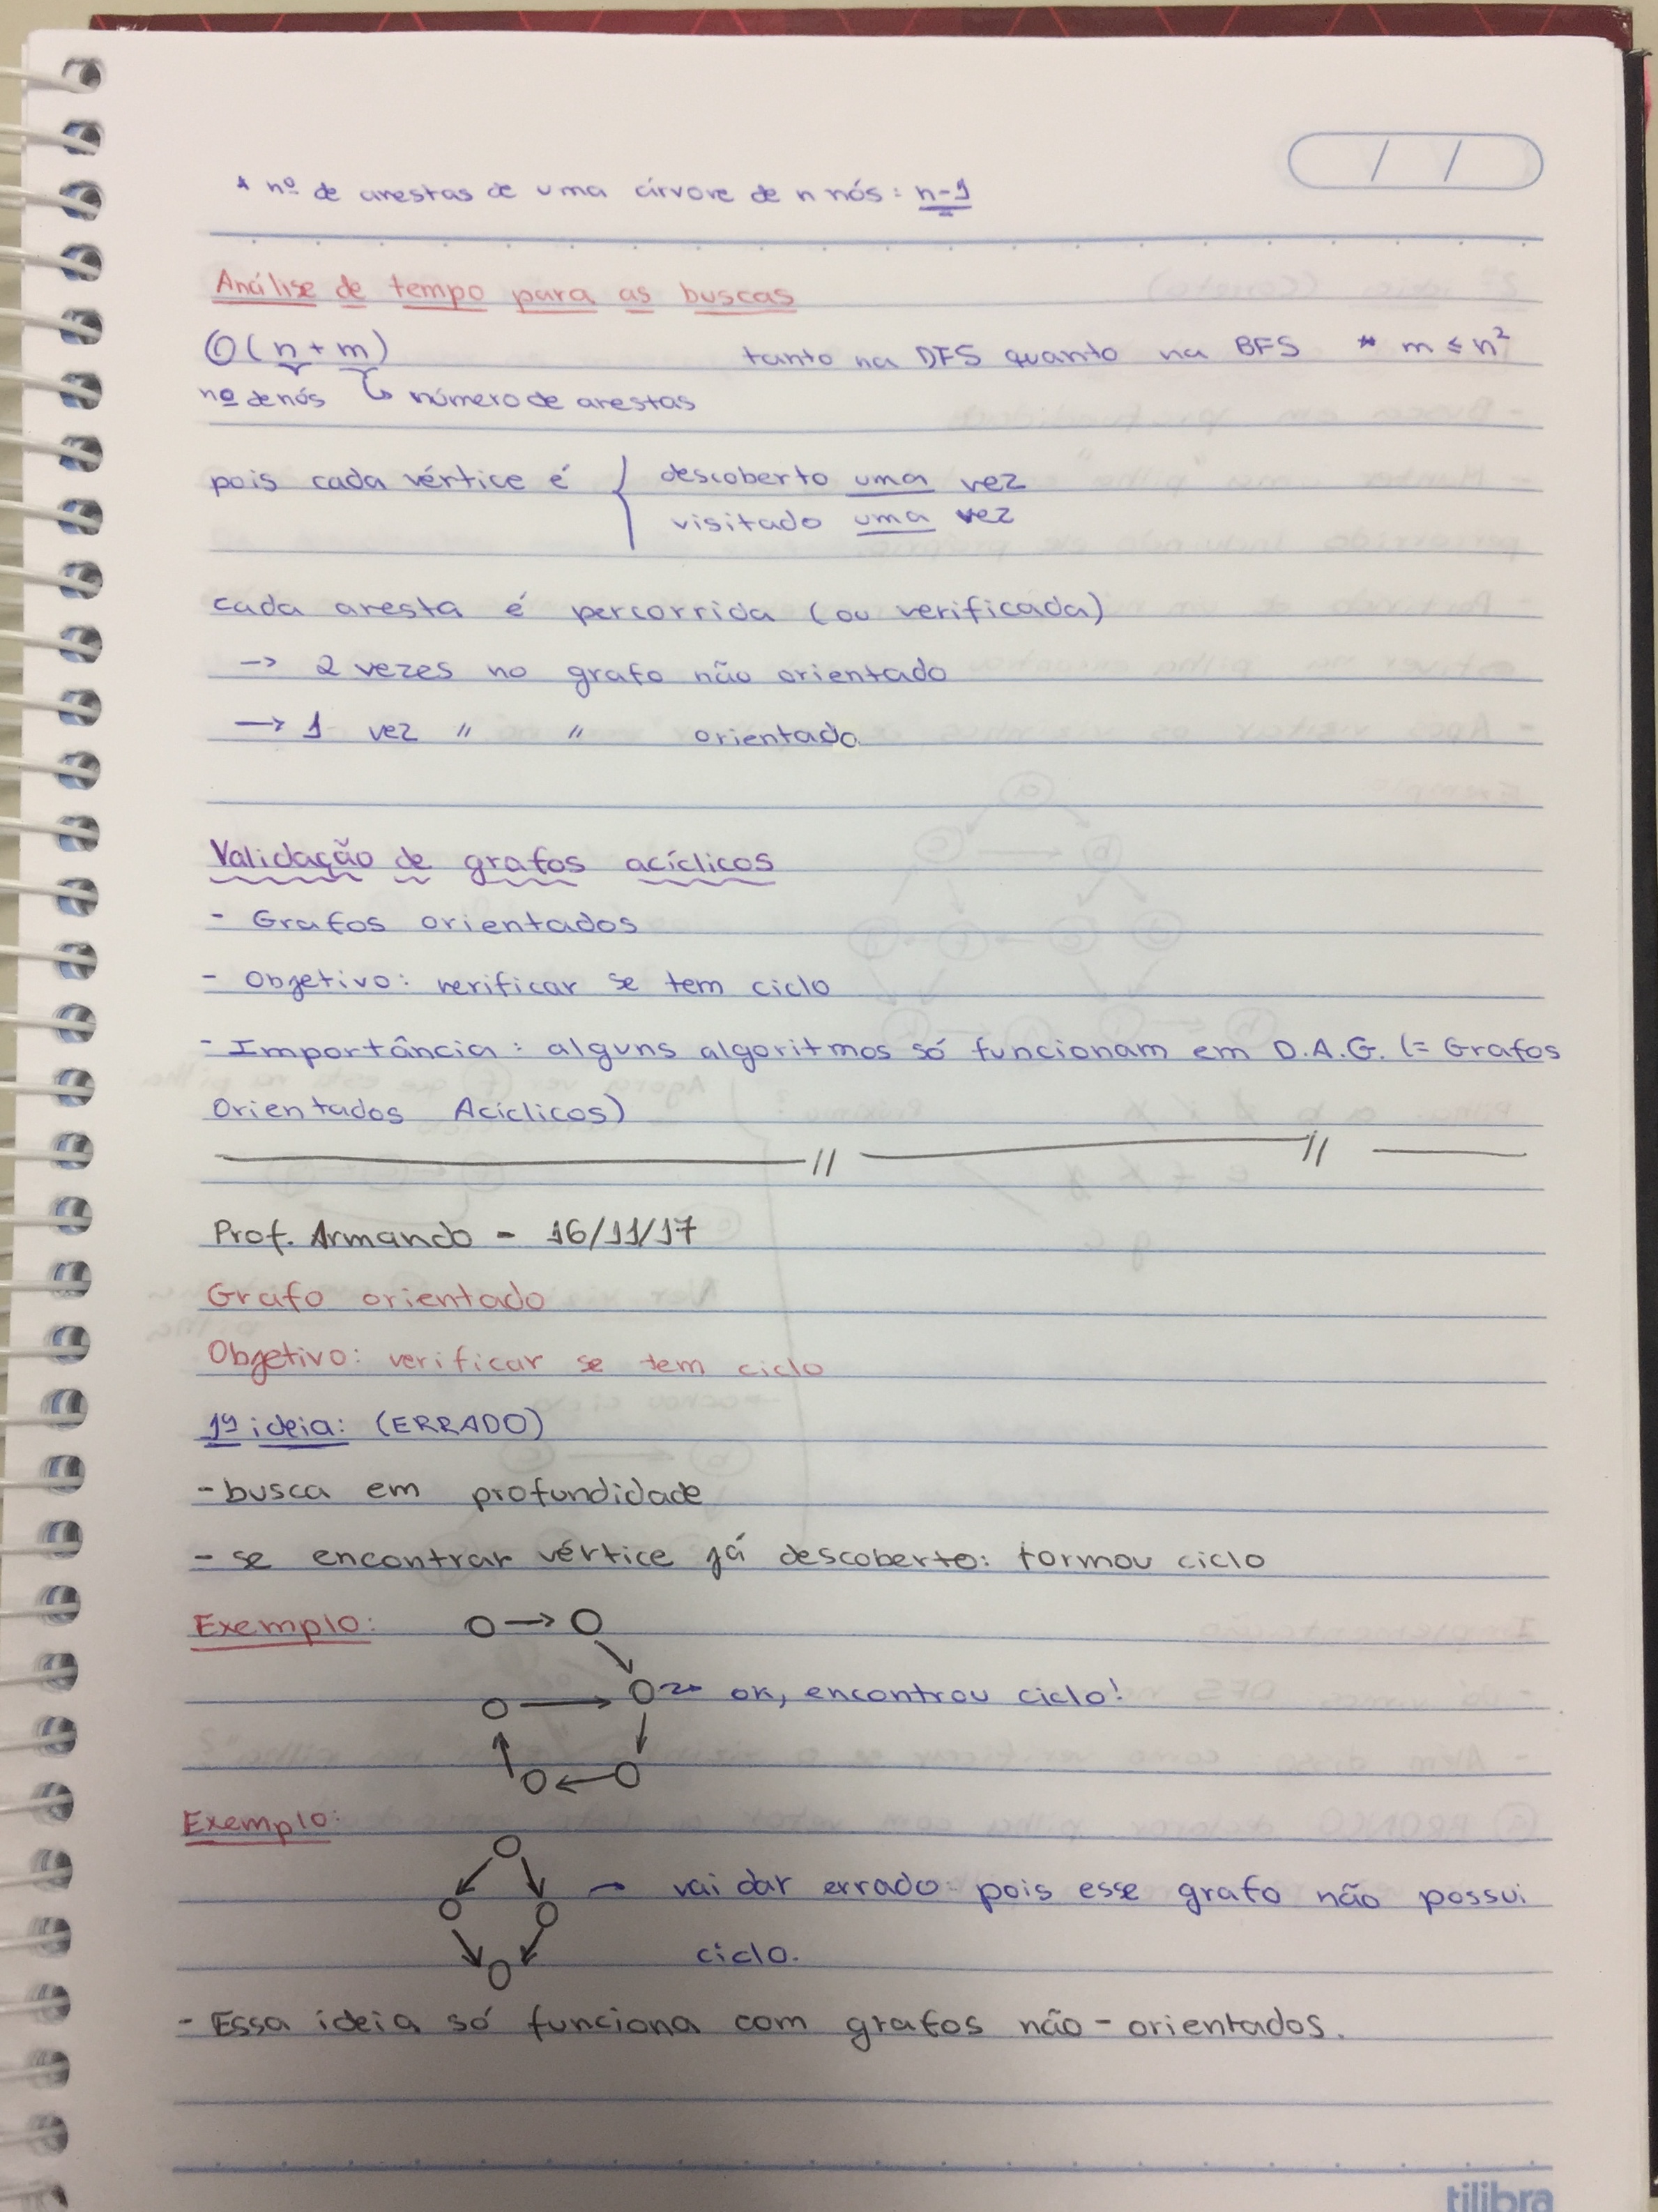 * nº de arestas de uma árvore de n nós: n-1
Análise de tempo para as buscas
O(n+m) tanto na DFS quanto na BFS * m ≤ n²
nº de nós ↳ número de arestas
pois cada vértice é { descoberto uma vez
visitado uma vez
cada aresta é percorrida (ou verificada)
→ 2 vezes no grafo não orientado
→ 1 vez " " orientado
Validação de grafos acíclicos
- Grafos orientados
- Objetivo: verificar se tem ciclo
- Importância: alguns algoritmos só funcionam em D.A.G. (= Grafos
Orientados Acíclicos)
Prof. Armando - 16/11/17
Grafo orientado
Objetivo: verificar se tem ciclo
1ª ideia: (ERRADO)
- busca em profundidade
- se encontrar vértice já descoberto: formou ciclo
Exemplo:
ok, encontrou ciclo!
Exemplo:
→ vai dar errado pois esse grafo não possui
ciclo.
- Essa ideia só funciona com grafos não-orientados.
tilibra